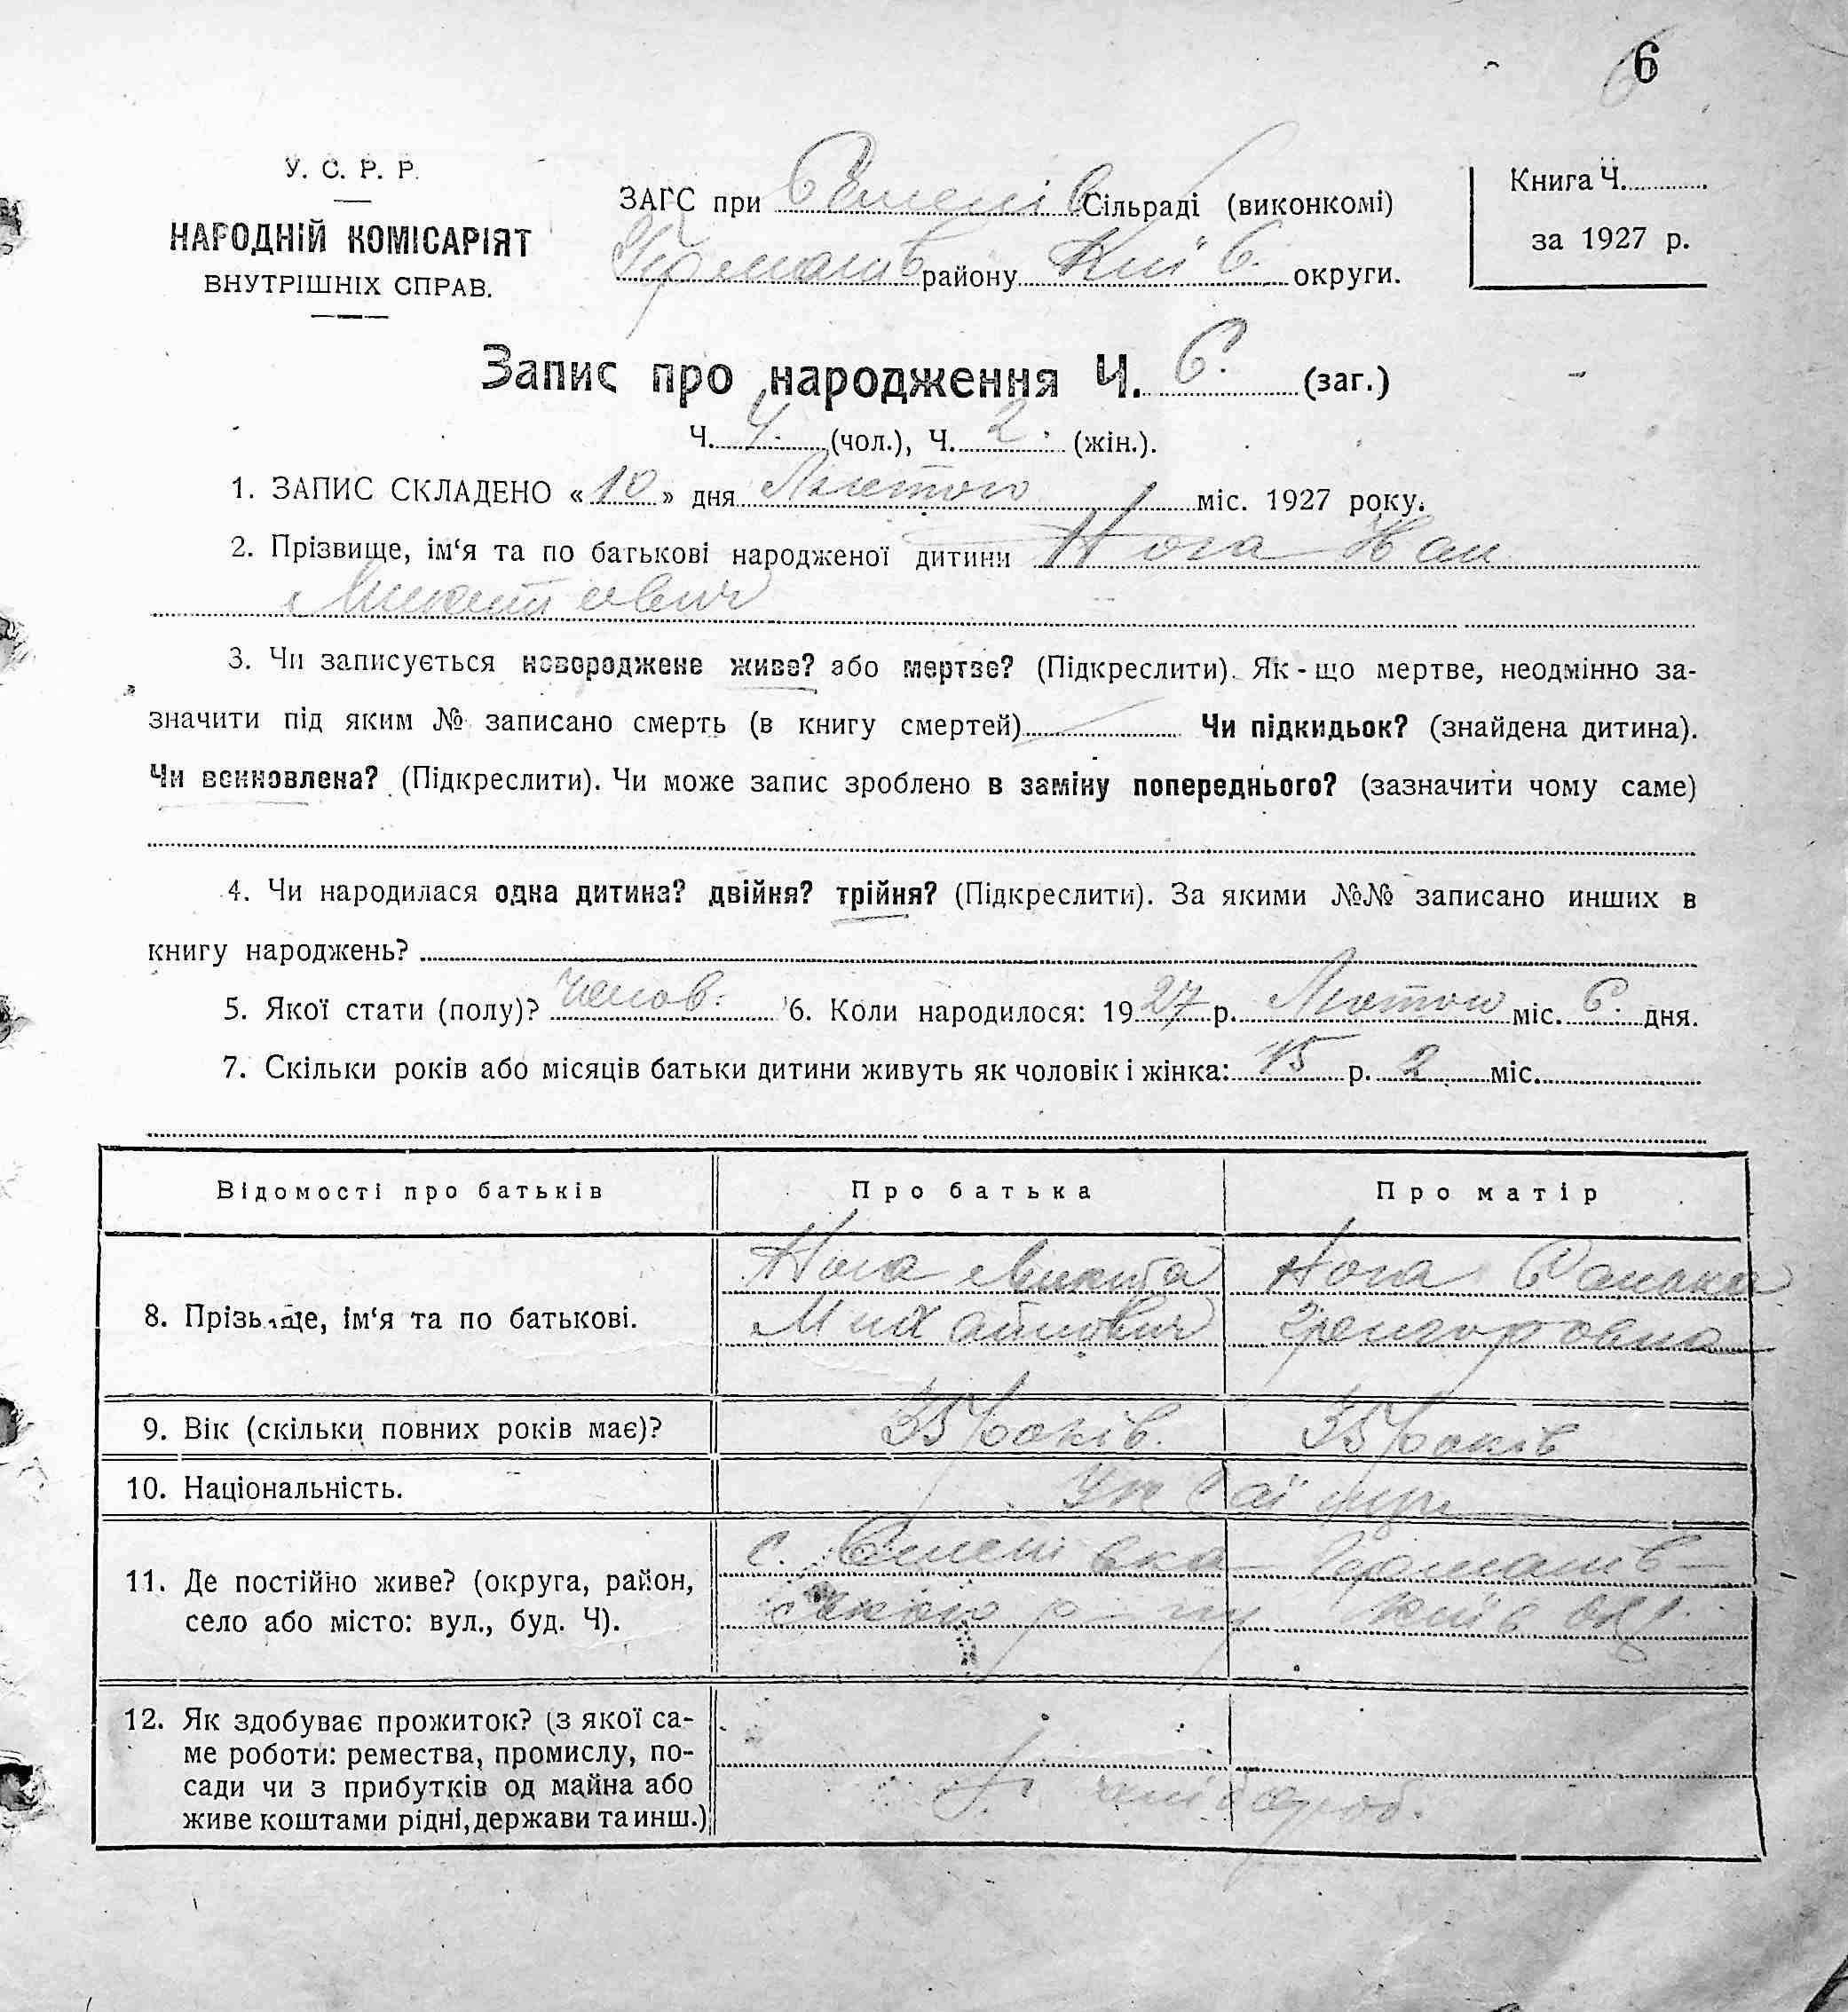 6
У. С. Р. Р.
НАРОДНІЙ КОМІСАРІЯТ
ВНУТРІШНІХ СПРАВ.
ЗАГС при Семенів Сільраді (виконкомі)
Германів району Київ. округи.
Книга Ч.
за 1927 р.
Запис про народження Ч. 6. (заг.)
Ч. 4. (чол.), Ч. 2. (жін.).
1. ЗАПИС СКЛАДЕНО «10» дня Лютого міс. 1927 року.
2. Прізвище, ім‘я та по батькові народженої дитини Нога
Микитович
3. Чи записується новороджене живе? або мертве? (Підкреслити). Як-що мертве, неодмінно за-
значити під яким № записано смерть (в книгу смертей) Чи підкидьок? (знайдена дитина).
Чи всиновлена? (Підкреслити). Чи може запис зроблено в заміну попереднього? (зазначити чому саме)
4. Чи народилася одна дитина? двійня? трійня? (Підкреслити). За якими №№ записано инших в
книгу народжень?
5. Якої стати (полу)? Чолов. 6. Коли народилося: 1927 р. Лютого міс. 6. дня.
7. Скільки років або місяців батьки дитини живуть як чоловік і жінка: 15 р. 2 міс.
Відомості про батьків Про батька Про матір
8. Прізвище, ім‘я та по батькові.
Нога Микита
Михайлович
Нога
Григоровна
9. Вік (скільки повних років має)? 35 років. 35 років
10. Національність. Українці
11. Де постійно живе? (округа, район,
село або місто: вул., буд. Ч).
с. Семенівка Германів-
ського р-ну Київ окр.
12. Як здобуває прожиток? (з якої са-
ме роботи: ремества, промислу, по-
сади чи з прибутків од майна або
живе коштами рідні, держави та инш.)
хлібороб.